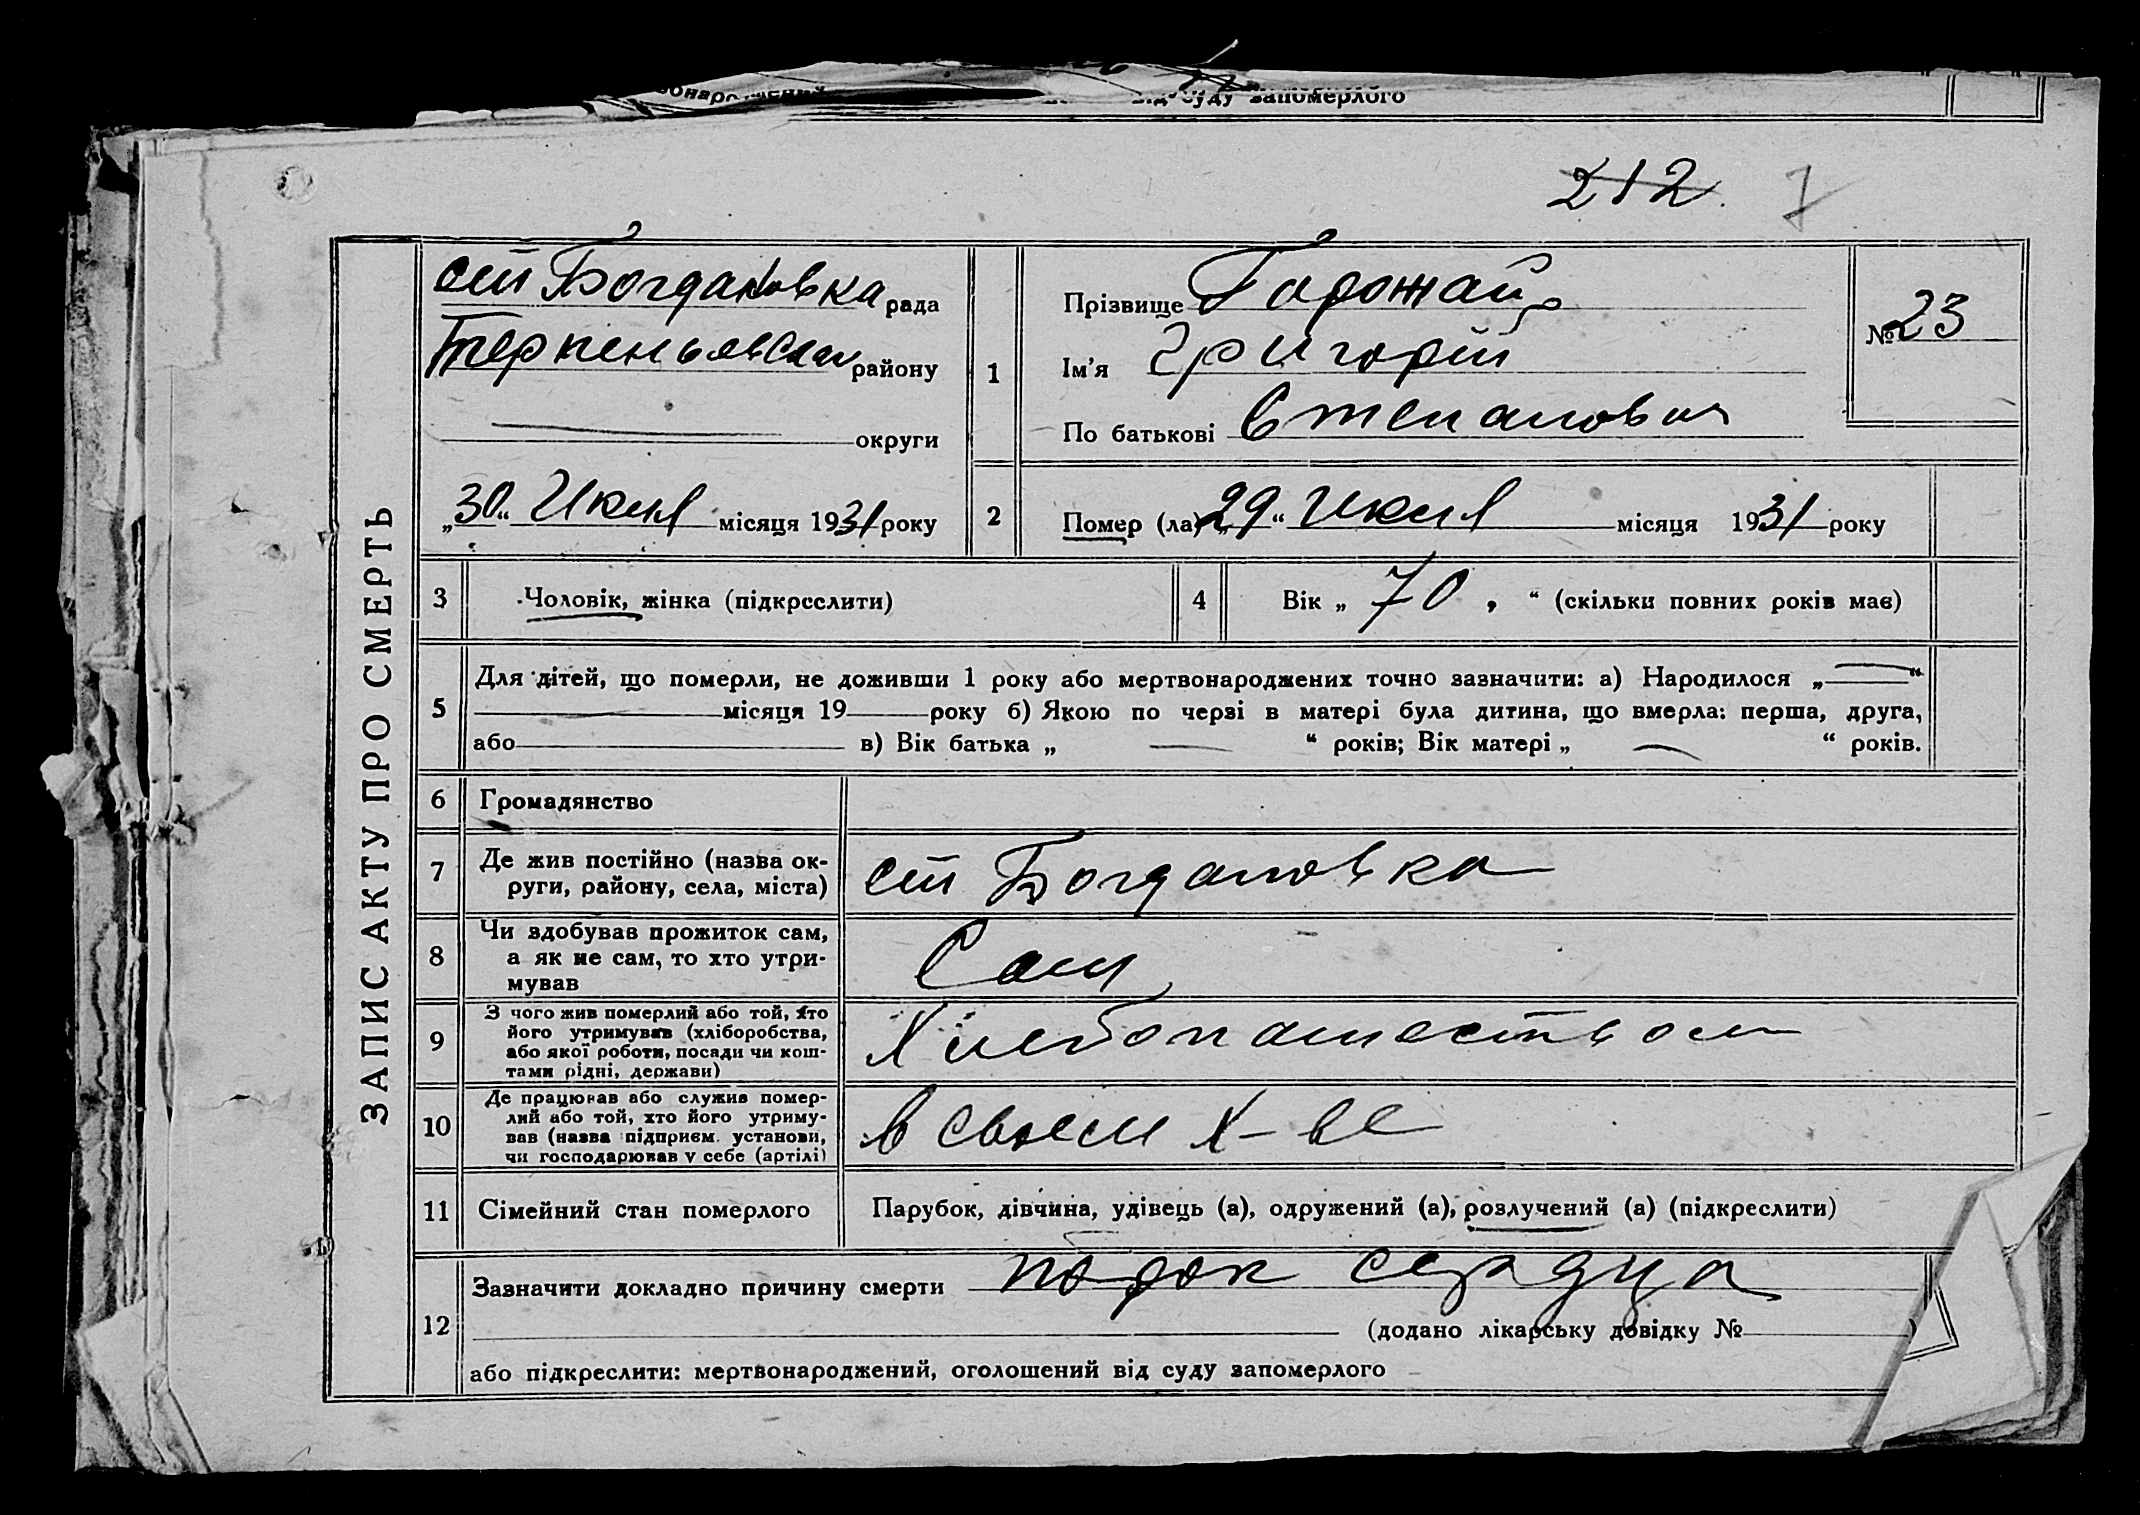 від суду запомерлого
212
7
ЗАПИС АКТУ ПРО СМЕРТЬ
ст Богдановка рада
району
округи
„30“ Июня місяця 1931 року
1
Прізвище
Ім’я Григорій
По батькові Степанович
№ 23
2
Помер (ла) „29“ Июня місяця 1931 року
3
Чоловік, жінка (підкреслити)
4
Вік „ 70 “ (скільки повних років має)
5
Для дітей, що померли, не доживши 1 року або мертвонароджених точно зазначити: а) Народилося „—“
місяця 19 року б) Якою по черзі в матері була дитина, що вмерла: перша, друга,
або в) Вік батька „ — “ років; Вік матері „ — “ років.
6
Громадянство
7
Де жив постійно (назва ок-
руги, району, села, міста)
ст Богдановка
8
Чи здобував прожиток сам,
а як не сам, то хто утри-
мував
Сам
9
З чого жив померлий або той, хто
його утримував (хліборобства,
або якої роботи, посади чи кош-
тами рідні, держави)
Хлебопашеством
10
Де працював або служив помер-
лий або той, хто його утриму-
вав (назва підприєм. установи,
чи господарював у себе (артілі)
в своем х-ве
11
Сімейний стан померлого
Парубок, дівчина, удівець (а), одружений (а), розлучений (а) (підкреслити)
12
Зазначити докладно причину смерти порок сердца
(додано лікарську довідку № )
або підкреслити: мертвонароджений, оголошений від суду запомерлого